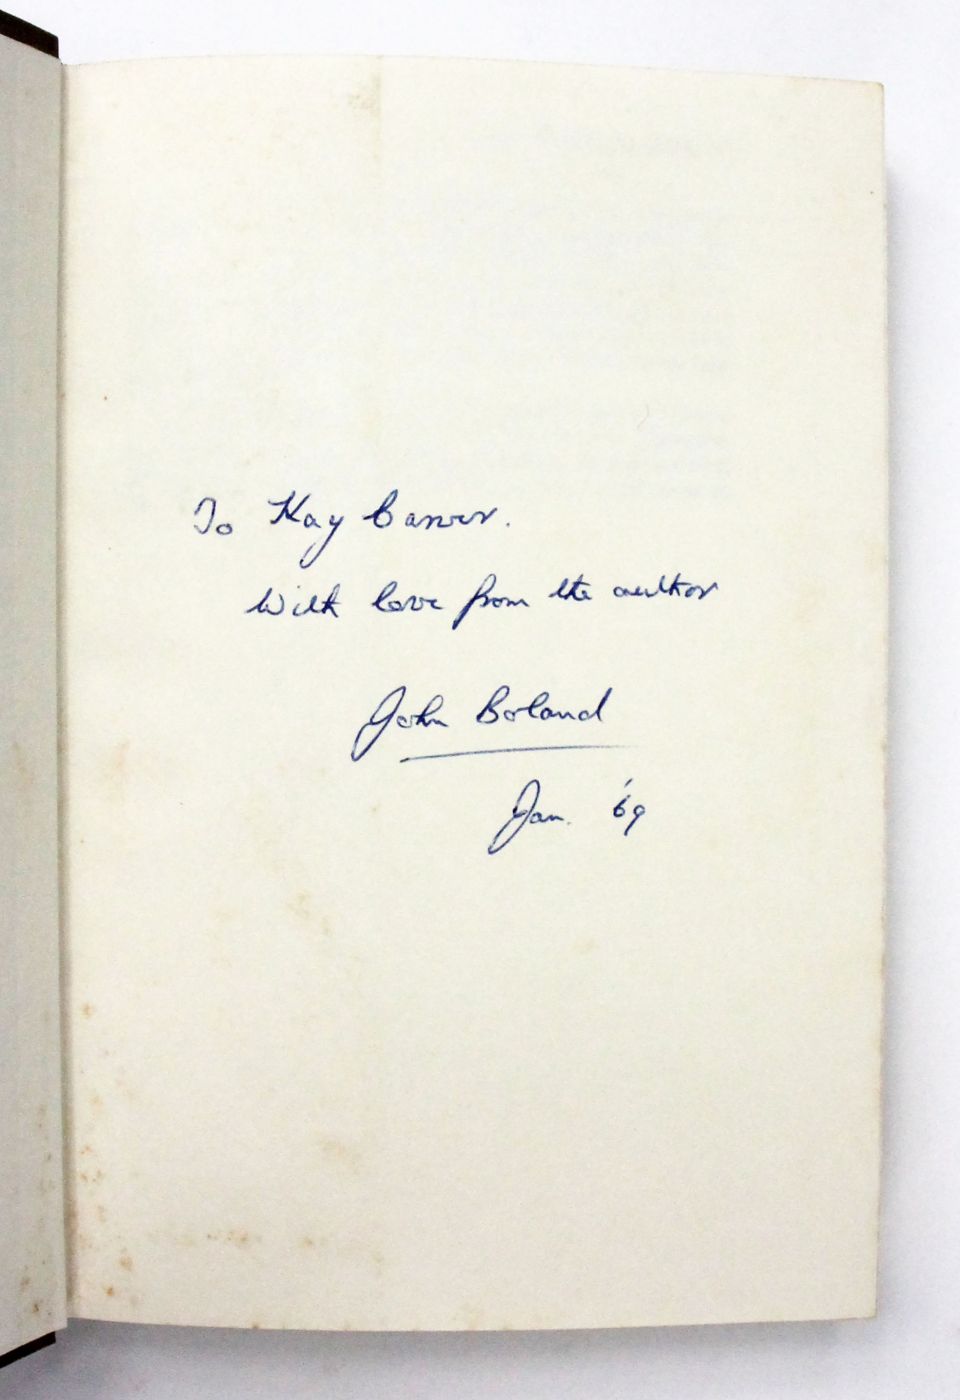 To Kay
With love from the author
John Boland
Jan. '69